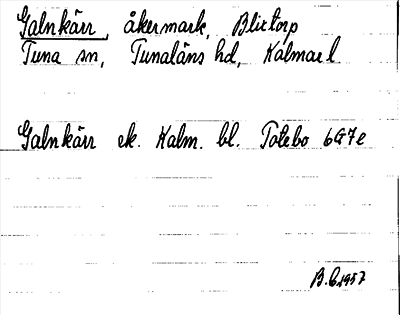 Galnkärr, åkermark, Blixtorp
Tuna sn, Tunaläns hd, Kalmar l
Galnkärr ek. Kalm. bl. Totebo 6G7e
B.C. 1957